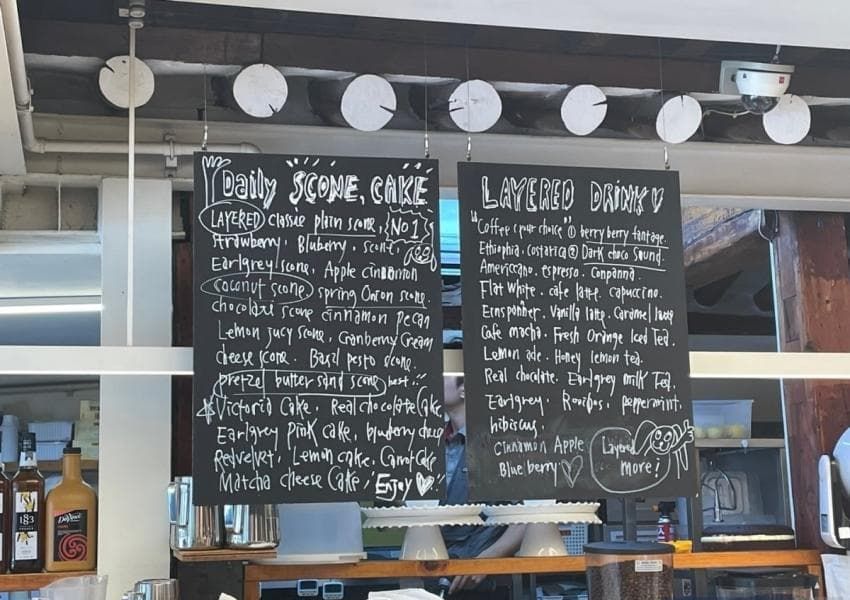 Daily SCONE, CAKE
LAYERED classic plain scone, No 1
strawberry, Bluberry, scone
Earlgrey scone, Apple cinnamon
coconut scone, spring Onion scone.
chocolate scone cinnamon pecan
Lemon jucy scone, Cranberry Cream
cheese scone. Basil pesto scone.
pretzel buttersand scone best..
Victoria Cake. Real chocolate Cake
Earlgrey Pink cake, blueberry cheese
Redvelvet, Lemon cake, Carrot Cake
Matcha cheese Cake, Enjoy
LAYERED DRINK
"Coffee your choice" ① berry berry fantage.
Ethiophia. costarica ② Dark choco sound.
Americcano. espresso. Conpanna.
Flat white. cafe latte. capuccino.
Einspanner. Vanilla latte. Caramel latte
Cafe macha. Fresh Orange Iced Tea.
Lemon ade. Honey lemon tea.
Real chocolate. Earlgrey milk Tea.
Earlgrey. Rooibos. peppermint.
hibiscus.
Cinnamon Apple
Blueberry
Layered
more!
1883
DaVinci